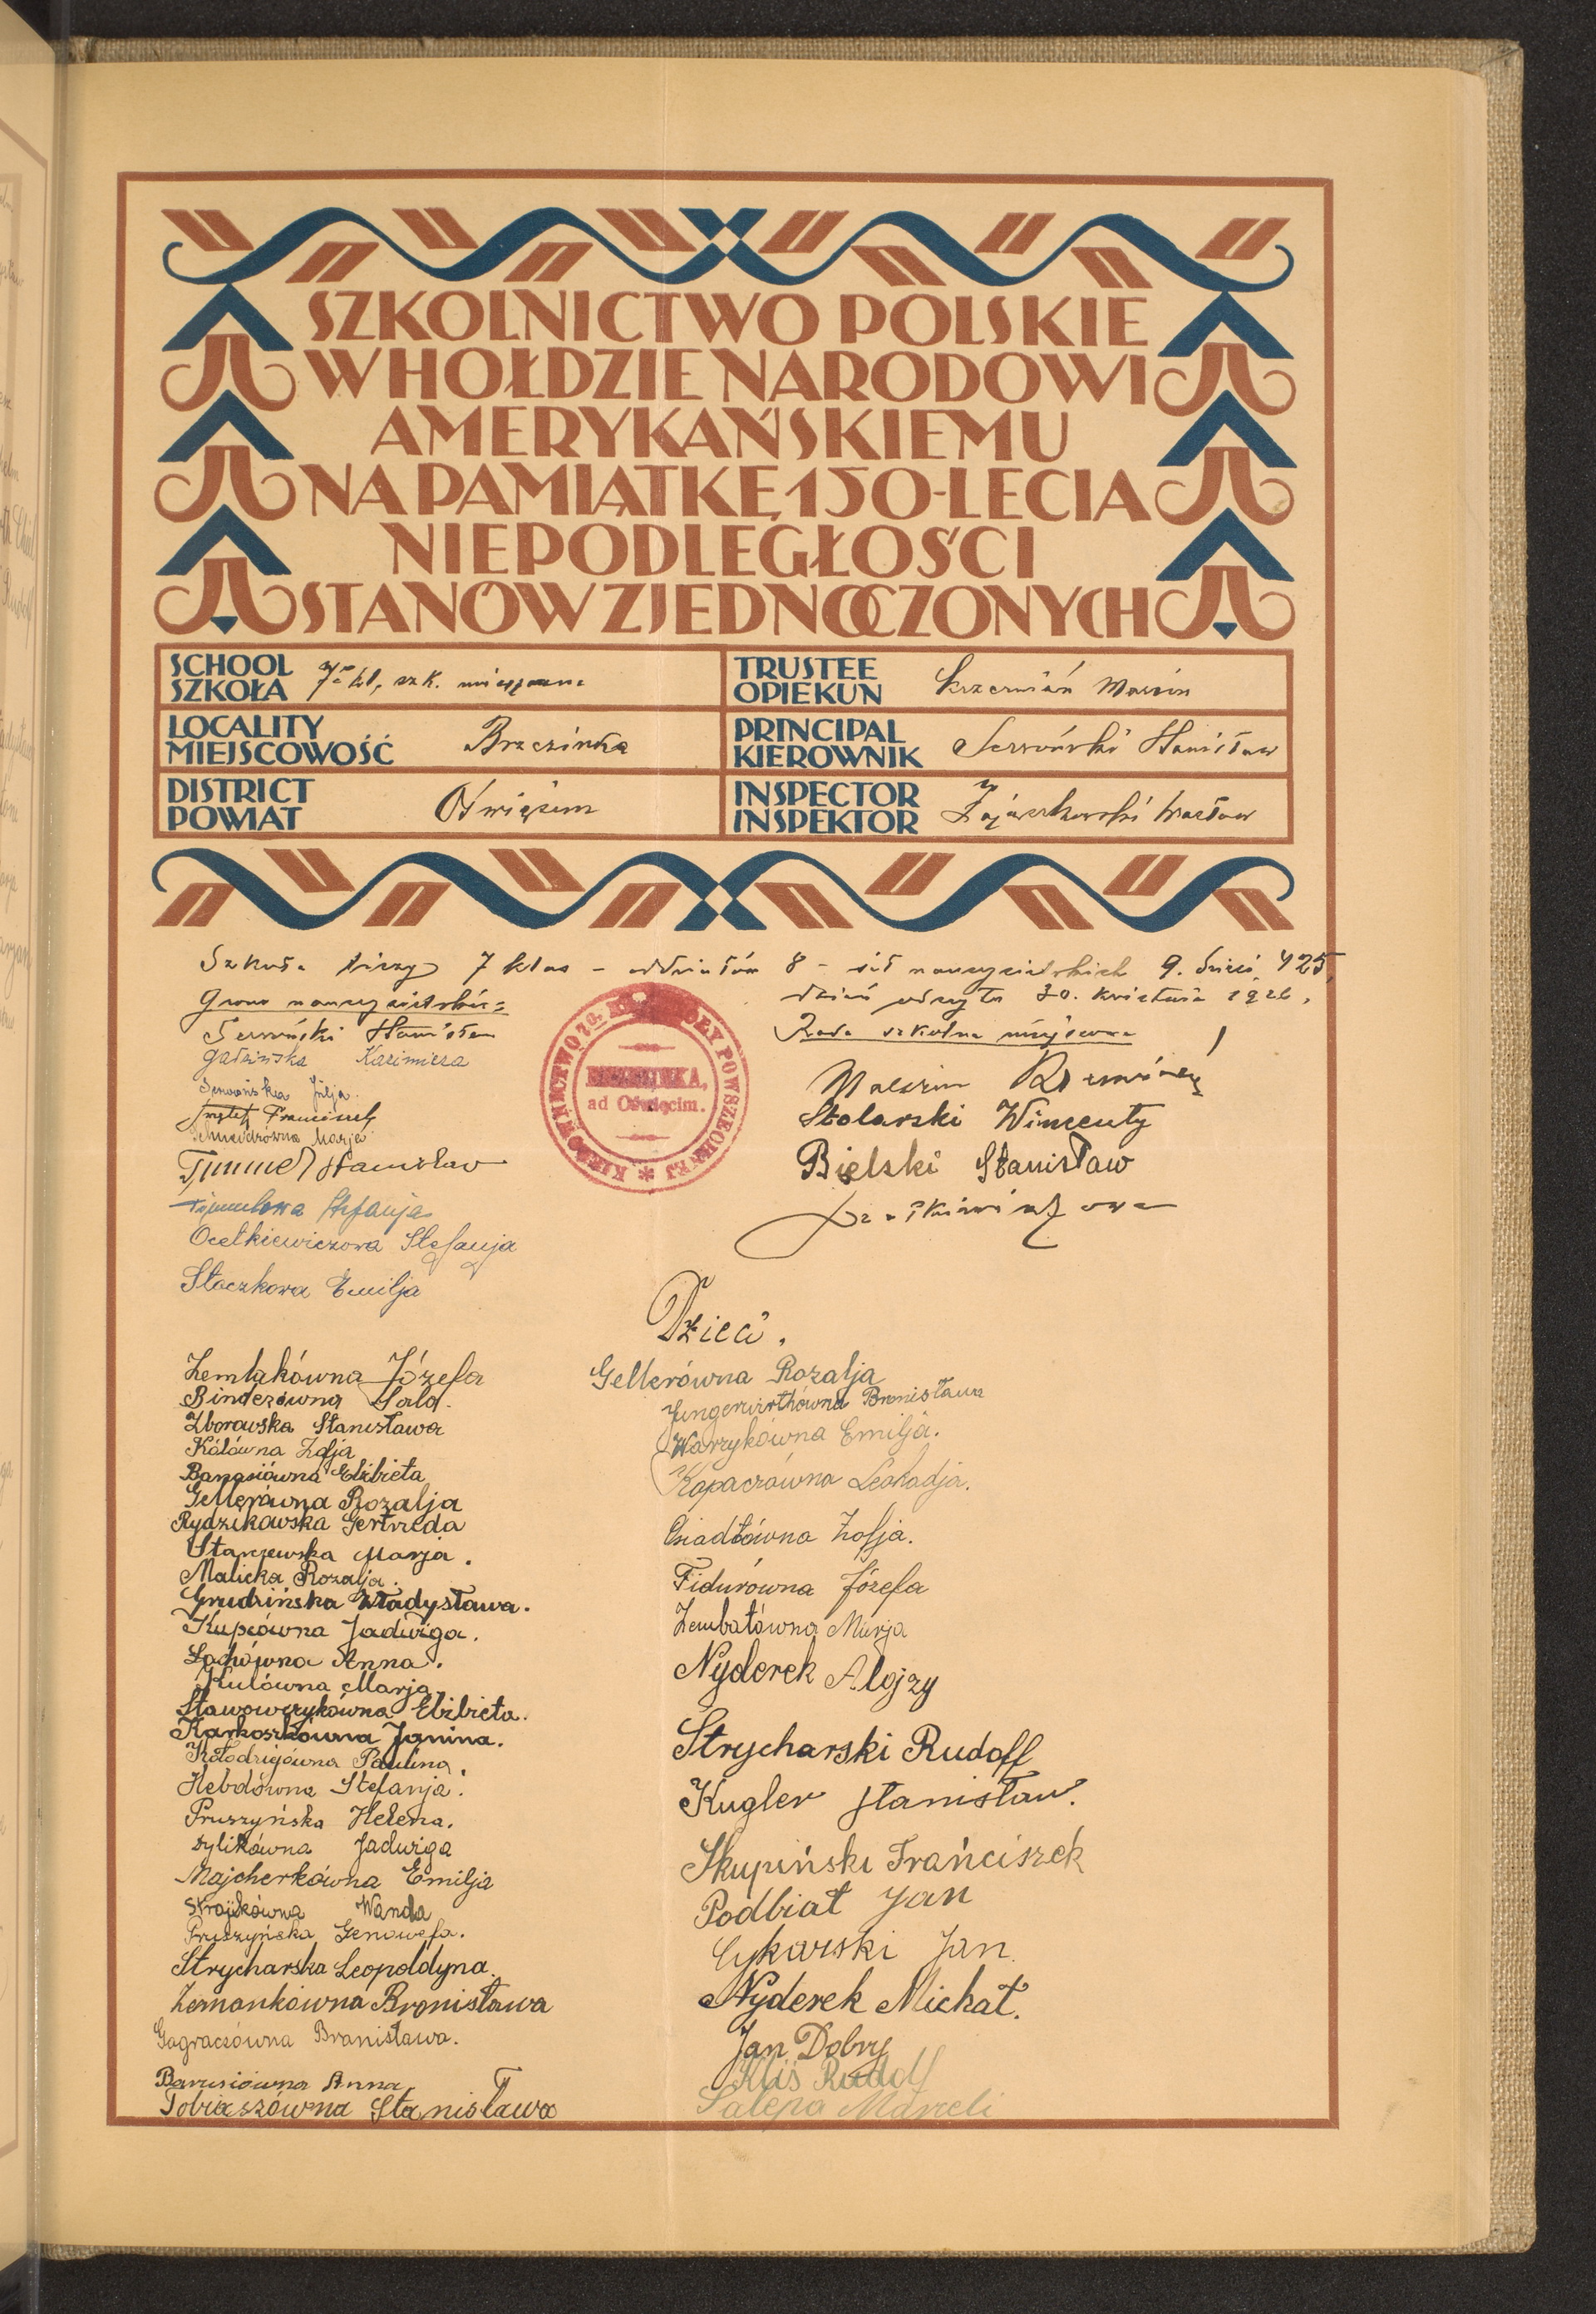 SZKOLNICTWO POLSKIE
W HOŁDZIE NARODOWI
AMERYKAŃSKIEMU
NA PAMIĄTKĘ 150-LECIA
NIEPODLEGŁOŚCI
STANÓW ZJEDNOCZONYCH
SCHOOL
SZKOŁA
7 kl. szk. mieszana
TRUSTEE
OPIEKUN
Marcin
LOCALITY
MIEJSCOWOŚĆ
Brzezinka
PRINCIPAL
KIEROWNIK
Serwoński Stanisław
DISTRICT
POWIAT
Oświęcim
INSPECTOR
INSPEKTOR
Zajączkowski Wacław
Szkoła liczy 7 klas – oddziałów 8 – sił nauczycielskich 9. dzieci 425
Grono nauczycielskie:
dzień 30. kwietnia 1926.
Serwoński Stanisław
Rada szkolna miejscowa
Kazimiera
Serwońska Julja
Marcin
Franciszek
Stolarski Wincenty
Schneidrówna Marja
Tymmel Stanisław
Bielski Stanisław
Stefanja
Ocetkiewiczowa Stefanja
Słaczkowa Emilja
KIEROWNICTWO 7o. KL. SZKOŁY POWSZECHNEJ
BRZEZINKA,
ad Oświęcim.
Dzieci.
Zemlakówna Józefa
Binderówna Sala.
Zborowska Stanisława
Kólówna Zofja
Banasiówna Elżbieta
Gellerówna Rozalja
Rydzikowska Gertruda
Staniewska Marja.
Malicka Rozalja.
Grudzińska Władysława.
Kupcówna Jadwiga.
Lachówna Anna.
Kulówna Marja
Stawowczykówna Elżbieta.
Karkoszkówna Janina.
Kołodziejówna Paulina.
Hebdówna Stefanja.
Pruszyńska Helena.
Dylikówna Jadwiga
Majcherkówna Emilja
Strójkówna Wanda
Pruszyńska Genowefa.
Strycharska Leopoldyna.
Zemankówna Bronisława
Gagraczówna Bronisława.
Barusiówna Anna
Tobiaszówna Stanisława
Gellerówna Rozalja
Jungerwirthówna Bronisława
Warzykówna Emilja.
Kopaczówna Leokadja.
Osiadłówna Zofja.
Fidurówna Józefa
Zembałówna Marja
Nyderek Alojzy
Strycharski Rudolf
Kugler Stanisław.
Skupiński Franciszek
Podbiał Jan
Cykarski Jan.
Nyderek Michał.
Jan Dobry
Kliś Rudolf
Salepa Marceli